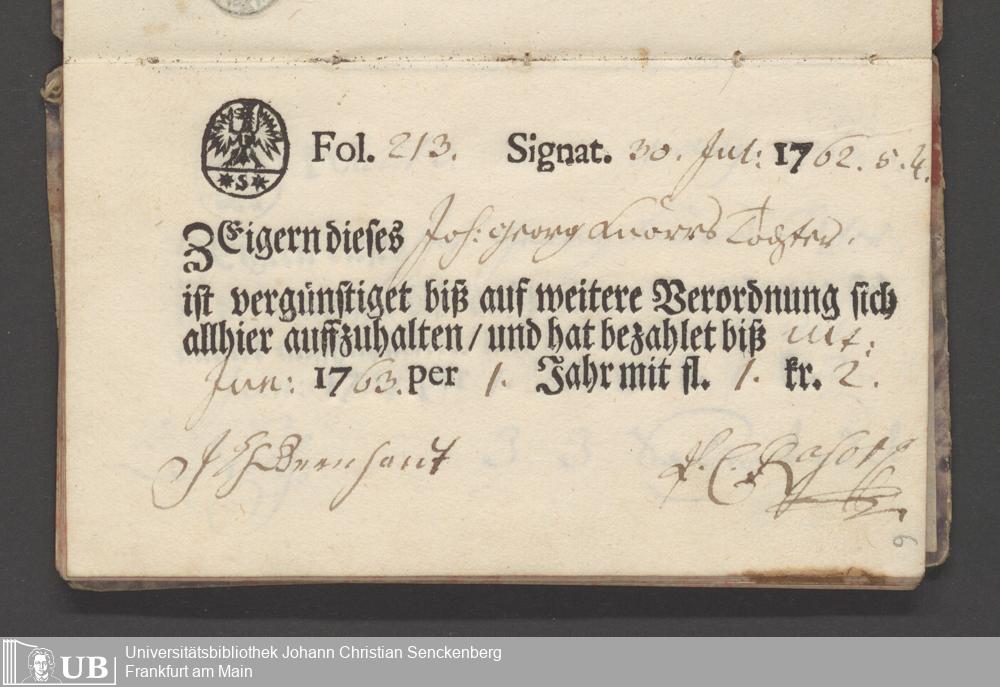 S
Fol. 213. Signat. 30. Jul: 1762. s. 4.
ZEigern dieses Joh: Georg Knörrs Tochter.
ist vergünstiget biß auf weitere Verordnung sich
allhier auffzuhalten / und hat bezahlet biß ult:
Jun: 1763. per 1. Jahr mit fl. 1. kr. 2.
6
UB
Universitätsbibliothek Johann Christian Senckenberg
Frankfurt am Main